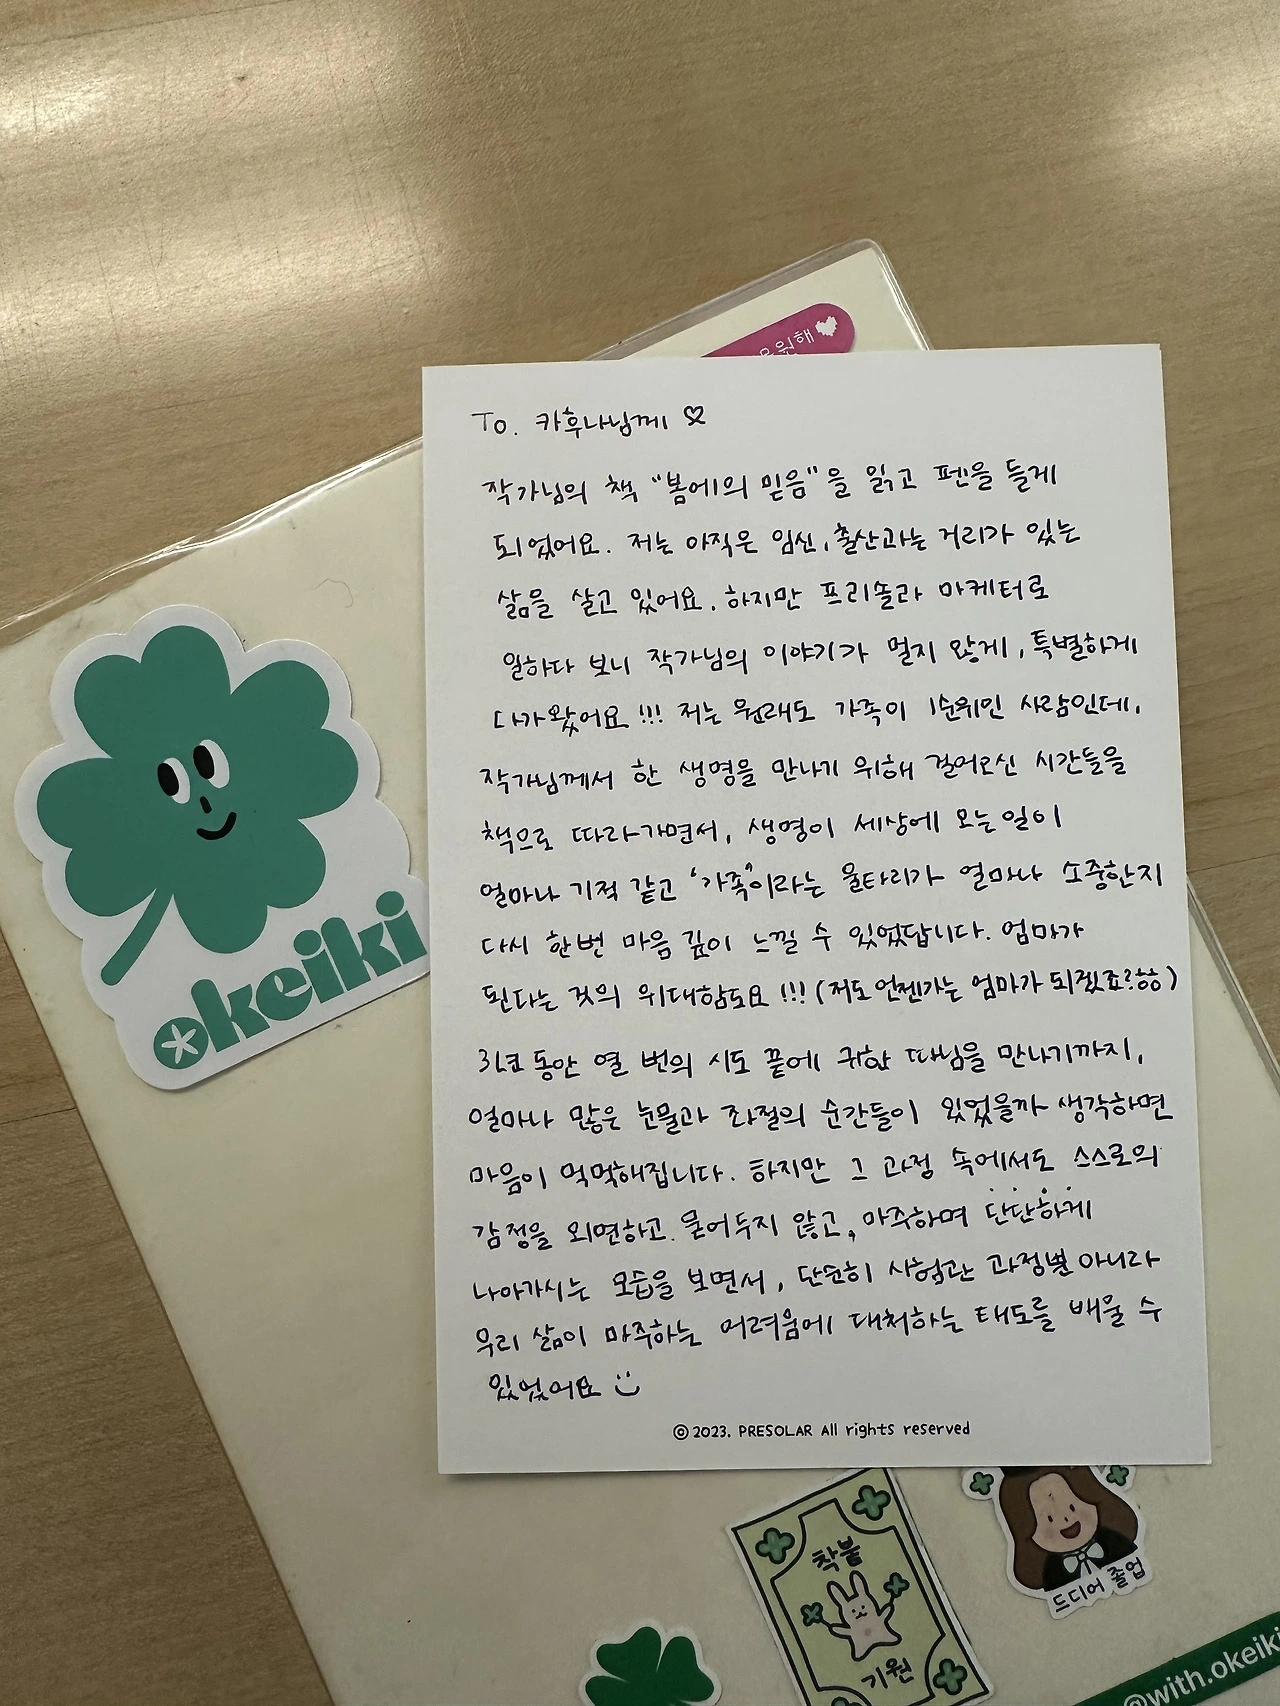 응원해
To. 카후나님께 ♡
작가님의 책 "봄에의 믿음"을 읽고 펜을 들게
되었어요. 저는 아직은 임신, 출산과는 거리가 있는
삶을 살고 있어요. 하지만 프리솔라 마케터로
일하다 보니 작가님의 이야기가 멀지 않게, 특별하게
다가왔어요!!! 저는 원래도 가족이 1순위인 사람인데,
작가님께서 한 생명을 만나기 위해 걸어오신 시간들을
책으로 따라가면서, 생명이 세상에 오는 일이
얼마나 기적 같고 '가족'이라는 울타리가 얼마나 소중한지
다시 한번 마음 깊이 느낄 수 있었답니다. 엄마가
된다는 것의 위대함도요!!! (저도 언젠가는 엄마가 되겠죠?ㅎㅎ)
3년 동안 열 번의 시도 끝에 귀한 따님을 만나기까지,
얼마나 많은 눈물과 좌절의 순간들이 있었을까 생각하면
마음이 먹먹해집니다. 하지만 그 과정 속에서도 스스로의
감정을 외면하고 묻어두지 않고, 마주하며 단단하게
나아가시는 모습을 보면서, 단순히 시험관 과정뿐 아니라
우리 삶이 마주하는 어려움에 대처하는 태도를 배울 수
있었어요
© 2023. PRESOLAR All rights reserved
okeiki
착붙
기원
드디어 졸업
@with.okeiki